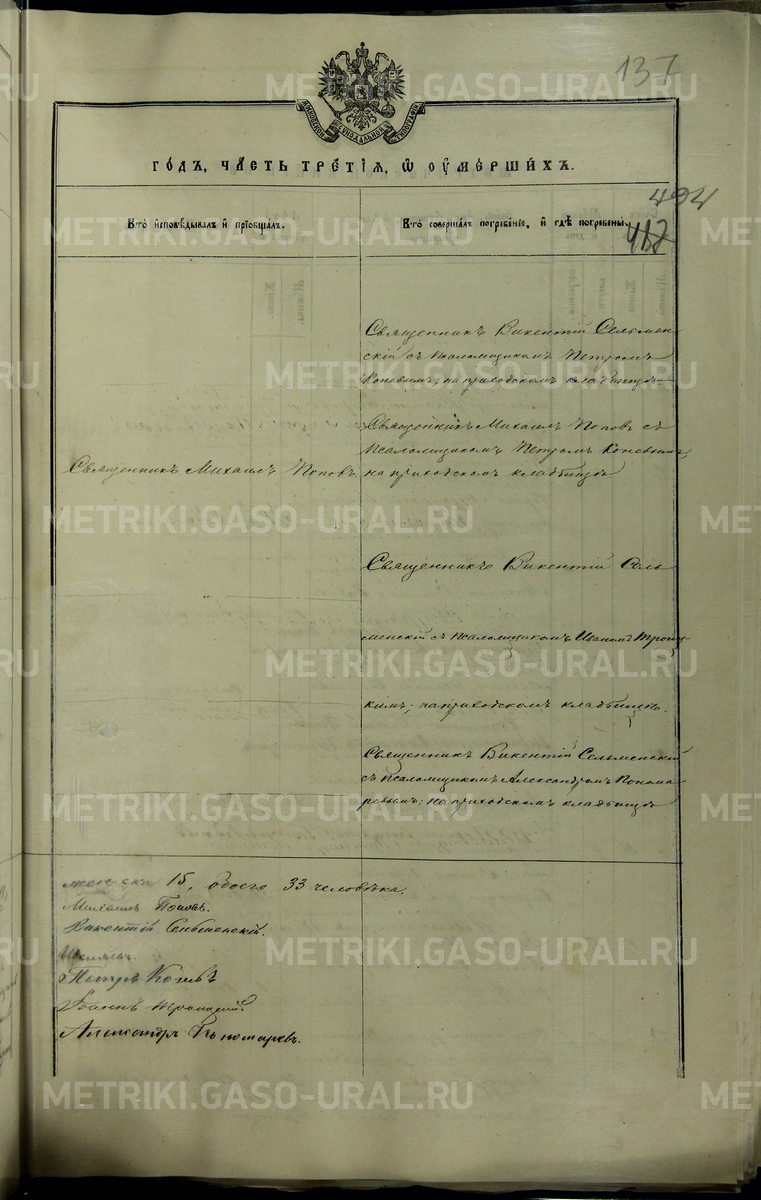 137
МОСКОВСКОЙ СѴНОДАЛЬНОЙ ТИПОГРАФІИ
ГОДЪ, ЧАСТЬ ТРЕТІѦ, Ѡ ОУМЕРШИХЪ.
494
Кто исповѣдывалъ и пріобщалъ.
Кто совершалъ погребеніе, и гдѣ погребены.
417
Священникъ Викентій Сельмен-
скій съ псаломщикомъ Петромъ
Коневымъ; на приходскомъ кладбищѣ.
Священникъ Михаилъ Поповъ съ
Псаломщикомъ Петромъ Коневымъ,
Священникъ Михаилъ Поповъ
на приходскомъ кладбищѣ
Священникъ Викентій Сель
менскій съ псаломщикомъ Иваномъ Троиц
кимъ; на приходскомъ кладбищѣ.
Священникъ Викентій Сельменскій
съ псаломщикомъ Александромъ Понома
ревымъ; на приходскомъ кладбищѣ
женска 15, обоего 33 человѣка.
Михаилъ Поповъ.
Викентій Сельменскій.
Петръ Коневъ
Іоаннъ Троицкій.
Александръ Пономаревъ.
METRIKI.GASO-URAL.RU